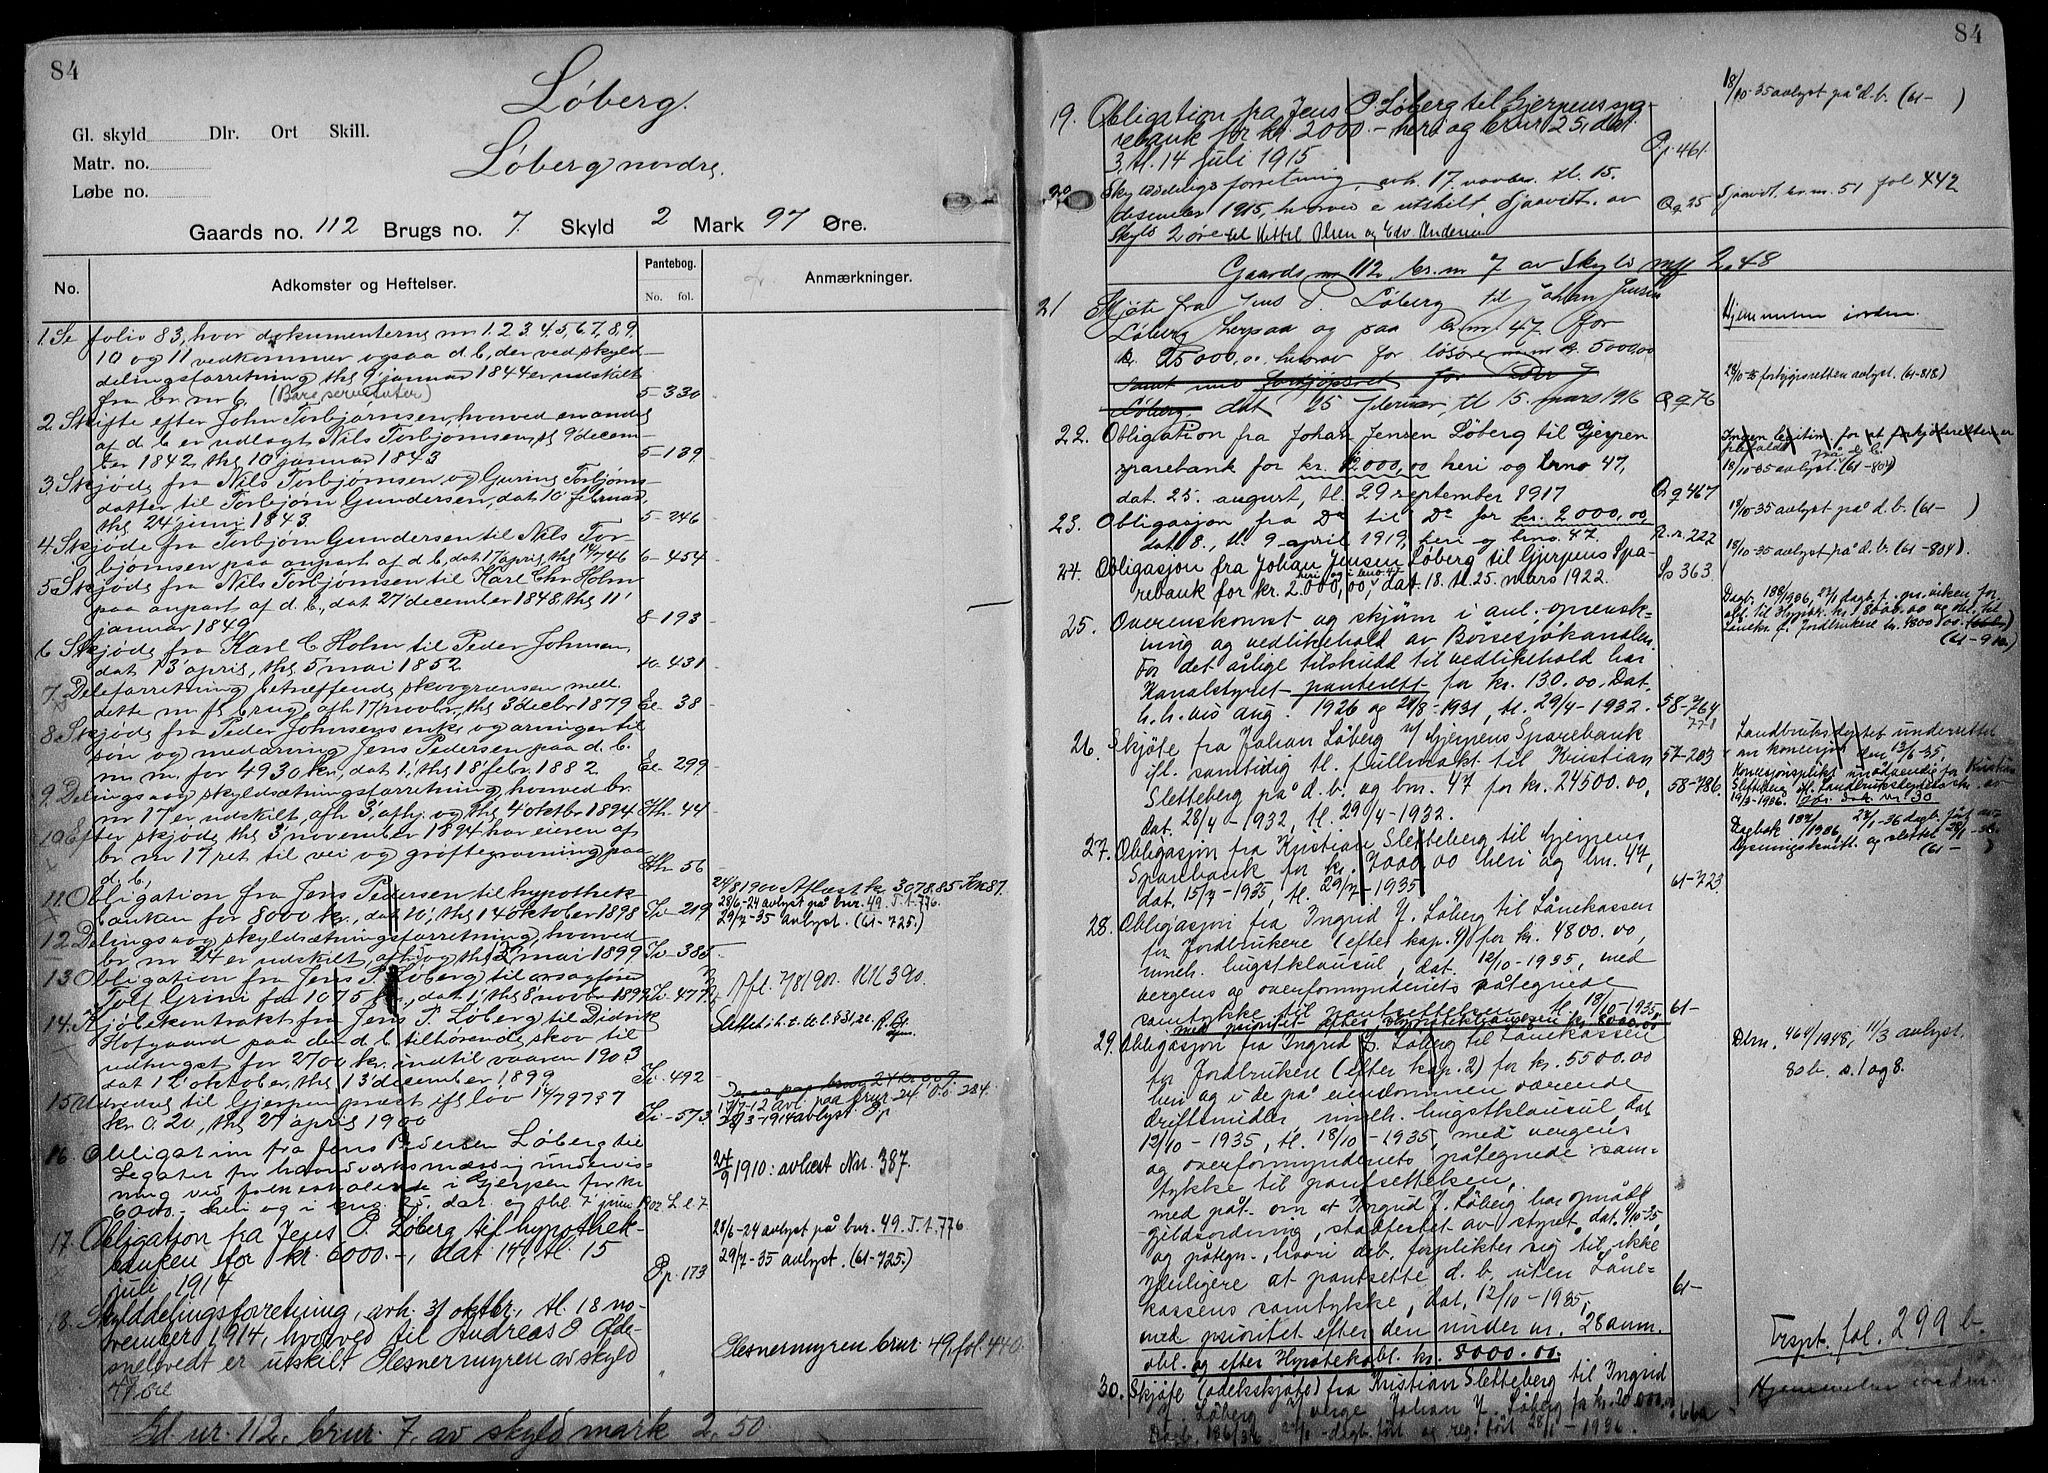 84
Løberg.
Gl. skyld Dlr. Ort Skill.
Matr. no.
Løberg nordre.
Løbe no.
Gaards no. 112 Brugs no. 7. Skyld 2 Mark 97 Øre.
No. Adkomster og Heftelser. Pantebog. No. fol. Anmærkninger.
1. Se folio 83, hvor dokumenterne nr 1, 2, 3, 4, 5, 6, 7, 8, 9,
10 og 11 vedkommer ogsaa d. b., der ved skyld-
delingsforretning thl 9 januar 1844 er udskilt
fra br. nr 6. (Bare servitutter) 5-330
2. Skifte efter John Torbjørnsen, hvorved en andel
af d. b. er udlagt Nils Torbjørnsen, 9 decem-
ber 1842, thl 10 januar 1843 5-139
3. Skjøde fra Nils Torbjørnsen og Guring Torbjørns-
datter til Torbjørn Gundersen, dat 10 februar
thl 24 juni 1843. 5-246
4. Skjøde fra Torbjørn Gundersen til Nils Tor-
bjørnsen paa anpart af d. b., dat 17 april, thl 14/7 46 6-454
5. Skjøde fra Nils Torbjørnsen til Karl Chr Holm
paa anpart af d. b., dat 27 december 1848, thl 11'
januar 1849 8-193
6. Skjøde fra Karl C Holm til Peder Johnsen,
dat 13' april, thl 5' mai 1852. 10-431
7. Deleforretning betreffende skovgrænsen mell.
dette m fl brug, afh 17 novbr., thl 3' decbr 1879 Ee- 38
8. Skjøde fra Peder Johnsens enke og arvinger til
søn og medarving Jens Pedersen paa d. b.
m. m. for 4930 kr, dat 1', thl 18' febr. 1882. Ee- 299
9. Delings- og skyldsætningsforretning, hvorved br.
nr 17 er udskilt, afh 3', afhj. og thl 4' oktbr 1894. Hh-44
10. Efter skjøde, thl 3' november 1894 har eieren af
br nr 17 ret til vei og grøftegravning paa
d. b. Hh-56
11. Obligation fra Jens Pedersen til hypothek-
banken for 8000 kr., dat 10', thl 14' oktober 1898 Ii-219
24/8 1900 Aflæst kr. 3078.85
28/6-24 avlyst på bnr. 49. T. t. 776.
29/7-35 avlyst. (61-725.)
12. Delings- og skyldsætningsforretning, hvorved
br nr 24 er udskilt, afh 5 og thl 12' mai 1899 Ii-385
13. Obligation fra Jens P. Løberg til orsagfører
Tolf Grini for 1075 kr., dat 1', thl 8' novbr 1899. Ii-477
Afl. 7/8 190. KK 390.
14. Kjøbekontrakt fra Jens P. Løberg til Didrik
Hofgaard paa den d. b. tilhørende skov til
udhugst for 2700 kr. indtil vaaren 1903
dat 12' oktober, thl 13' december 1899 Ii-492
Slettet i h. t. tl. l. § 31, 2c.
15. Udredsel til Gjerpen præst ifl lov 14/7 97 § 7
kr 0.20, thl 27' april 1900 Ii-573
17/7-12 avl. paa brnr-24 O. o. 284.
28/3-1914 avlyst.
16. Obligation fra Jens Pedersen Løberg til
Legatet for haandverksmæssig undervis-
ning ved folkeskolerne i Gjerpen for kr
6000.- heri og i brug. 25, dat. og thl. 7' juni 1902. L. l. 7
24/9 1910: avlæst Nn. 387.
17. Obligation fra Jens P. Løberg til hypothek-
banken for kr. 6000.-, dat 14, tl. 15
juli 1914 P p. 173
28/6-24 avlyst på bnr. 49. T. t. 776.
29/7-35 avlyst. (61-725.)
18. Skylddelingsforretning, avh. 31 oktbr., tl. 18 no-
vember 1914, hvorved til Andreas O Ofde-
snelvedt er utskilt Olesnermyren av skyld
47 øre "
Olesnermyren brnr. 49, fol. 440
Gd nr. 112, brnr. 7, av skyld mark 2,50.
84
19. Obligation fra Jens P. Løberg til Gjerpens spa-
rebank for kr. 2000.- heri og brnr 25, dat
3, tl. 14 juli 1915 Q q. 461.
18/10-35 avlyst på d. b. (61- )
20. Skylddelingsforretning, avh. 17. novbr. tl. 15.
desember 1915, hvorved er utskilt Sjaavidt. av Q q 25
skyld 2 øre til Kittil Olsen og Edv. Andersen
Sjaavidt. br. nr. 51 fol 442
Gaards nr 112, br. nr 7 av Skyld mk 2,48
21 Skjøte fra Jens P. Løberg til Johan Jensen
Løberg herpaa og paa br. nr. 47 for
kr. 25 000,00 hvorav for løsøre kr. 5 000,00
samt med forkjøpsret for Peder J
Løberg, dat 25 februar, tl. 15. mars 1916 Q q 76
Hjemmelen i orden.
28/10-35 forbygisretten avlyst. (61-818)
22. Obligation fra Johan Jensen Løberg til Gjerpen
sparebank for kr. 12.000,00 heri og brno 47,
dat. 25. august, tl. 29 september 1917 Q q 467
18/10-35 avlyst. på d. b. (61-804)
23. Obligasjon fra Do til Do for kr. 2 000,00
dat 8., tl. 9 april 1919, heri og brno. 47. R. r. 222
18/10-35 avlyst på d. b. (61- )
24. Obligasjon fra Johan Jensen Løberg til Gjerpens Spa-
rebank for kr. 2.000,00, heri og i bno 47 dat. 18. tl. 25. mars 1922. Ss 363
18/10-35 avlyst på d. br. (61-804).
25. Overenskomst og skjøm i anl. oprensk-
ning og vedlikehold av Børsesjøkanalen.
For det årlige tilskudd til vedlikehold har
Kanalstyret panterett for kr. 130.00. Dat.
h. h. vis aug. 1926 og 21/8-1931, tl. 29/4-1932. 58-764
771
26. Skjøte fra Johan Løberg v/ Gjerpens Sparebank
ifl. samtidig tl. fullmakt til Kristian 57-203
Sletteberg på d. b. og bnr. 47 for kr. 24500.00, 58-786.
Dat. 28/4-1932, tl. 29/4-1932.
27. Obligasjon fra Kristian Sletteberg til Gjerpens
Sparebank for kr. 7000.00 heri og bnr. 47,
dat. 15/7-1935, tl. 29/7-1935 61-723
28. Obligasjon fra Ingrid J. Løberg til Lånekassen
for Jordbrukere (efter kap. 4) for kr. 4800.00,
inneh. hugstklausul, dat. 12/10-1935, med
vergens og overformynderiets påtegnede
samtykke til pantsettelsen, tl. 18/10-1935, 61-
med prioritet efter Hypotekbanken kr. 8000.00
29. Obligasjon fra Ingrid J. Løberg til Lånekassen
for Jordbrukere (efter kap. 2) for kr. 5500.00
heri og i de på eiendommen værende
driftsmidler inneh. hugstklausul dat
12/10-1935, tl. 18/10-1935, med vergens
og overformynderiets påtegnede sam-
tykke til pantsettelsen,
med påt. om at Ingrid J. Løberg har opnådd
gjeldsordning, stadfestet av styret, dat. 9/10-35,
og påtegn., hvori deb. forplikter sig til ikke
yderligere at pantsette d. b. uten Låne-
kassens samtykke, dat. 12/10-1935, 61-
med prioritet efter den under nr. 28 anm.
obl. og efter Hypotekobl. kr. 8000.00.
Dbnr. 464/1948, 11/3 avlyst.
80 b. s. 1 og 8.
Trspt. fol. 299 b.
30. Skjøte (odelsskjøte) fra Kristian Sletteberg til Ingrid
J. Løberg v/ verge Johan J. Løberg for kr. 20 000.00
Dagb. 186/36 22/1-dagb. ført og reg. ført 28/1-1936.
Hjemmelen i orden.